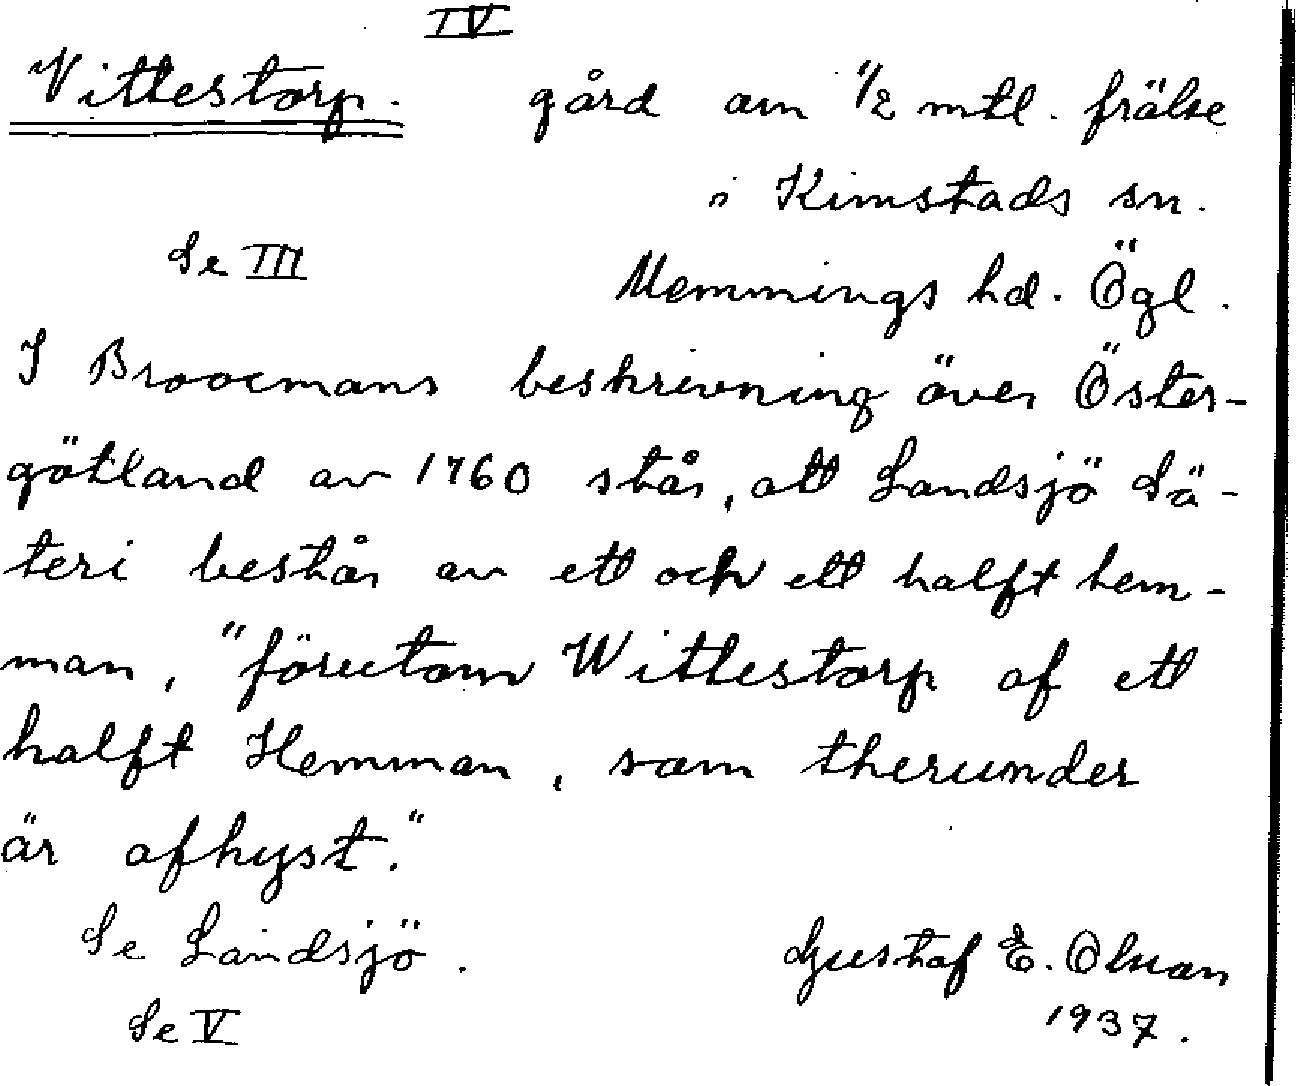 IV
Vittestorp. gård om 1/2 mtl. frälse
i Kimstads sn.
Se III Memmings hd. Ögl.
I Broocmans beskrivning över Öster-
götland av 1760 står, att Landsjö Sä-
teri består av ett och ett halft hem-
man, "förutom Wittestorp af ett
halft Hemman, som therunder
är afhyst."
Se Landsjö. Gustaf E. Olsson
Se V 1937.